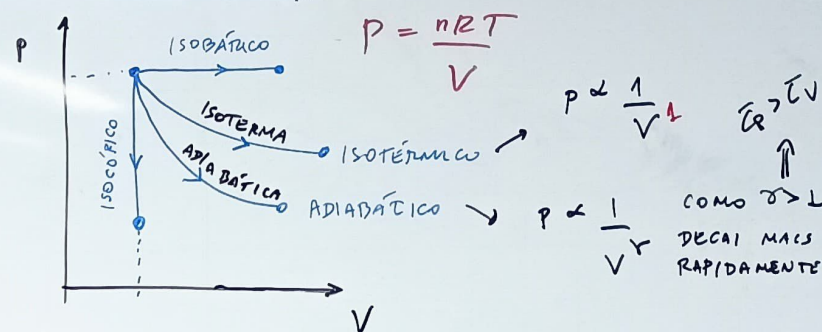 P
ISOBÁRICO
P = nRT / V
ISOCÓRICO
ISOTERMA
ISOTÉRMICO
P ∝ 1 / V^1
ADIABÁTICA
ADIABÁTICO
P ∝ 1 / V^γ
c̄p > c̄v
⇑
COMO γ > 1
DECAI MAIS
RAPIDAMENTE
V